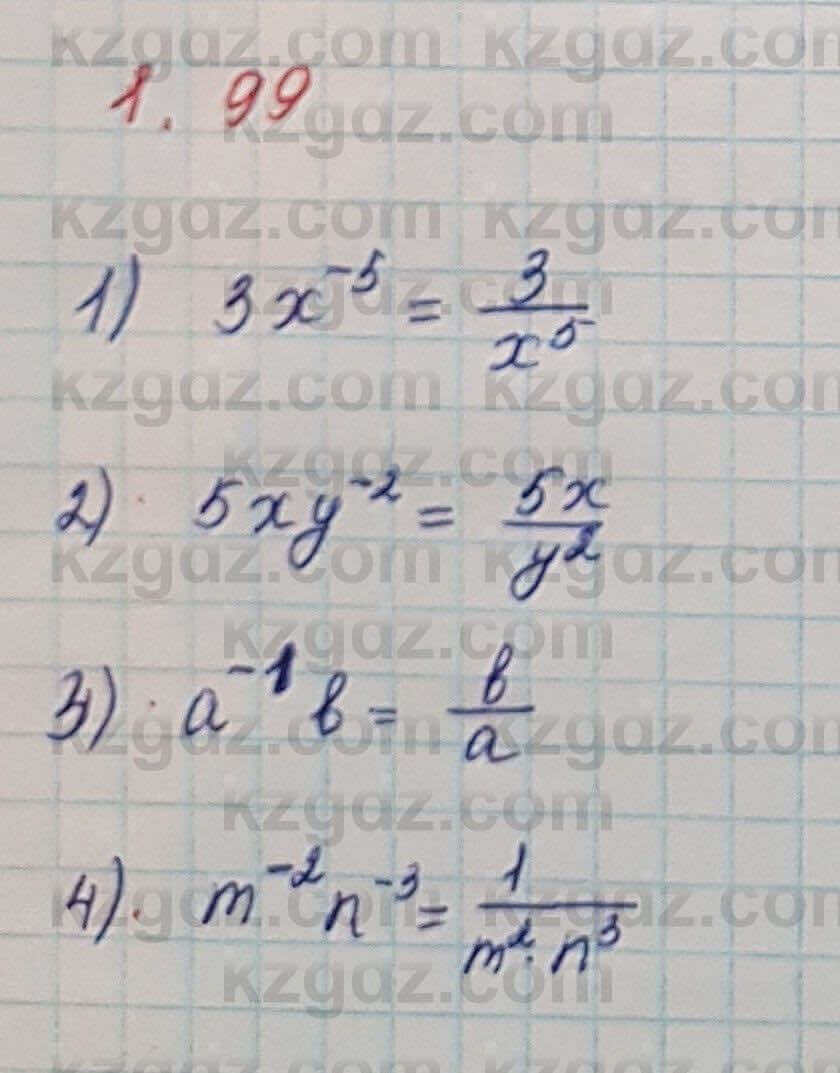 kzgaz.com kzgaz.com
1. 99
kzgaz.com
kzgaz.com kzgaz.com
1) 3x⁻⁵ = 3/x⁵
kzgaz.com
kzgaz.com kzgaz.com
kzgaz.com
2) 5xy⁻² = 5x/y²
kzgaz.com kzgaz.com
kzgaz.com
3) a⁻¹b = b/a
kzgaz.com kzgaz.com
kzgaz.com
4) m⁻²n⁻³ = 1/m²·n³
kzgaz.com kzgaz.com
kzgaz.com
kzgaz.com kzgaz.com